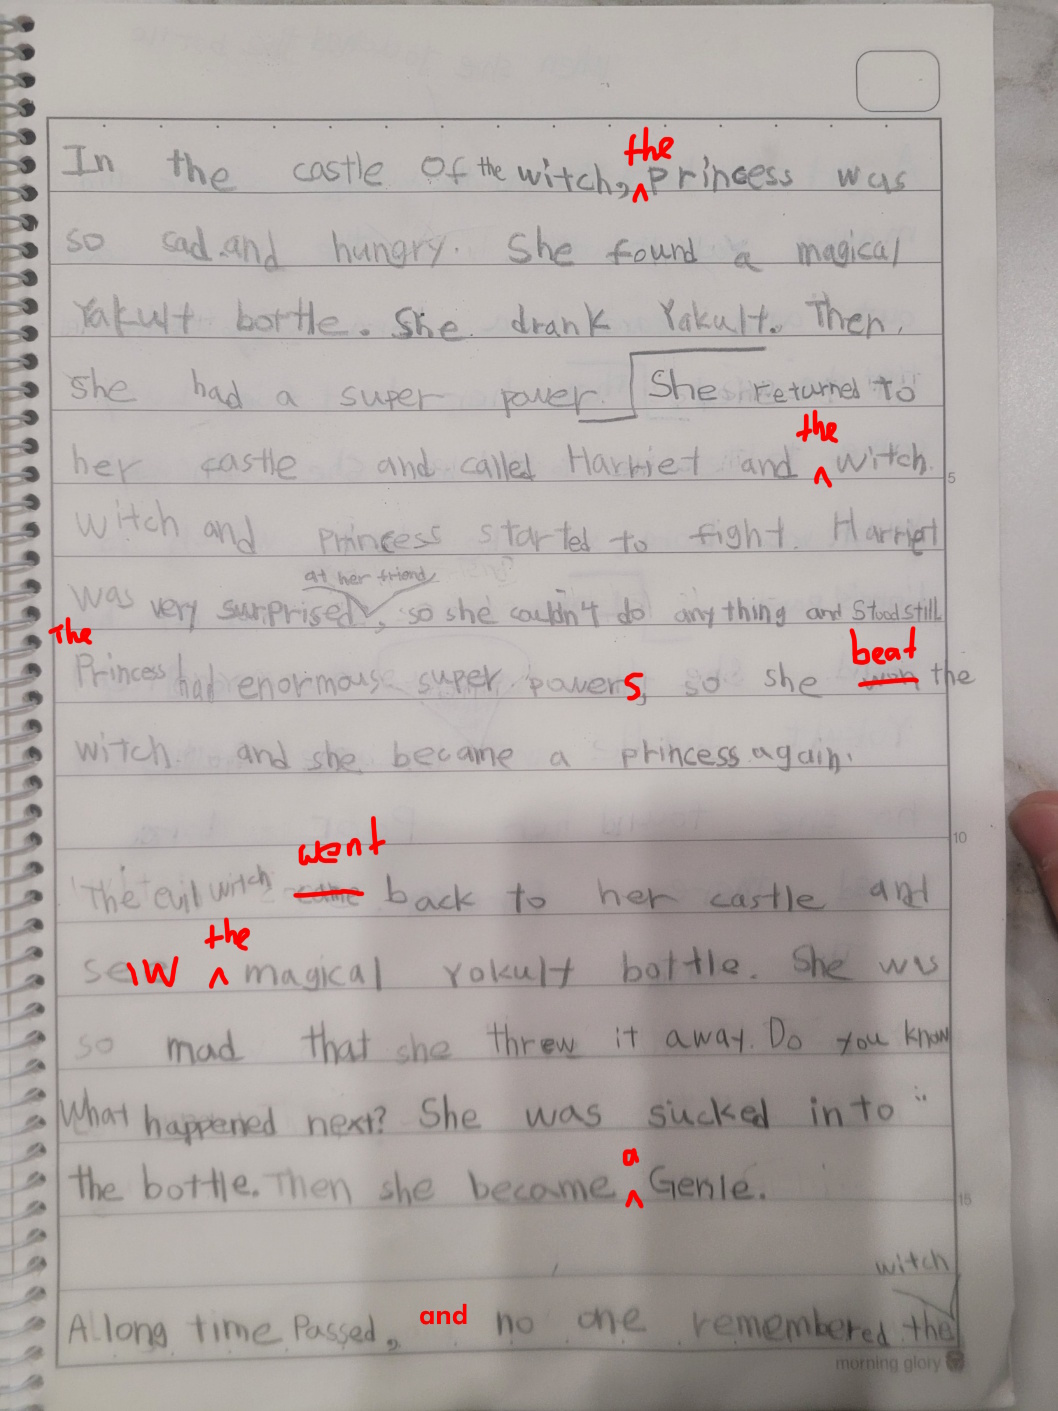 the
In the castle of the witch, ^ Princess was
so sad and hungry. She found a magical
Yakult bottle. She drank Yakult. Then,
she had a super power. She returned to
the
her castle and called Harriet and ^ witch.
5
witch and princess started to fight. Harriet
at her friend
was very surprised, so she couldn't do any thing and stood still
The
beat
Princess had enormous super powers, so she won the
witch and she became a princess again.
10
went
The evil witch came back to her castle and
the
saw ^ magical yakult bottle. She was
so mad that she threw it away. Do you know
What happened next? She was sucked in to
a
the bottle. Then she became ^ Genie.
15
witch
A long time Passed, and no one remembered the
morning glory